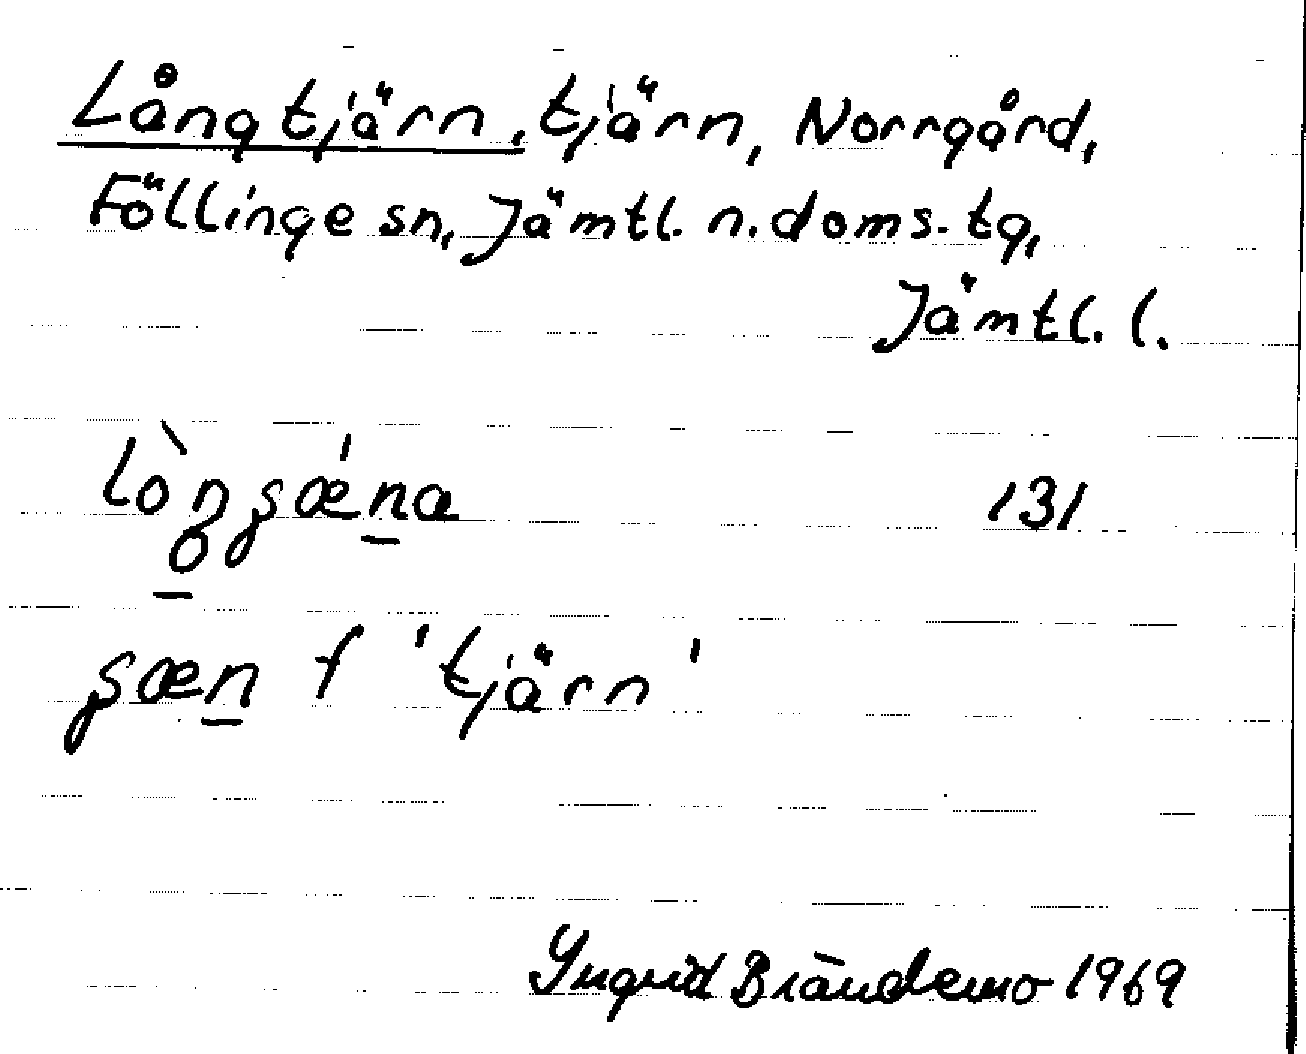 Långtjärn, tjärn, Norrgård,
Föllinge sn, Jämtl. n. doms. tg,
Jämtl. l.
lòŋʂǽna 131
ʂæn f 'tjärn'
Yngrid Brändemo 1969